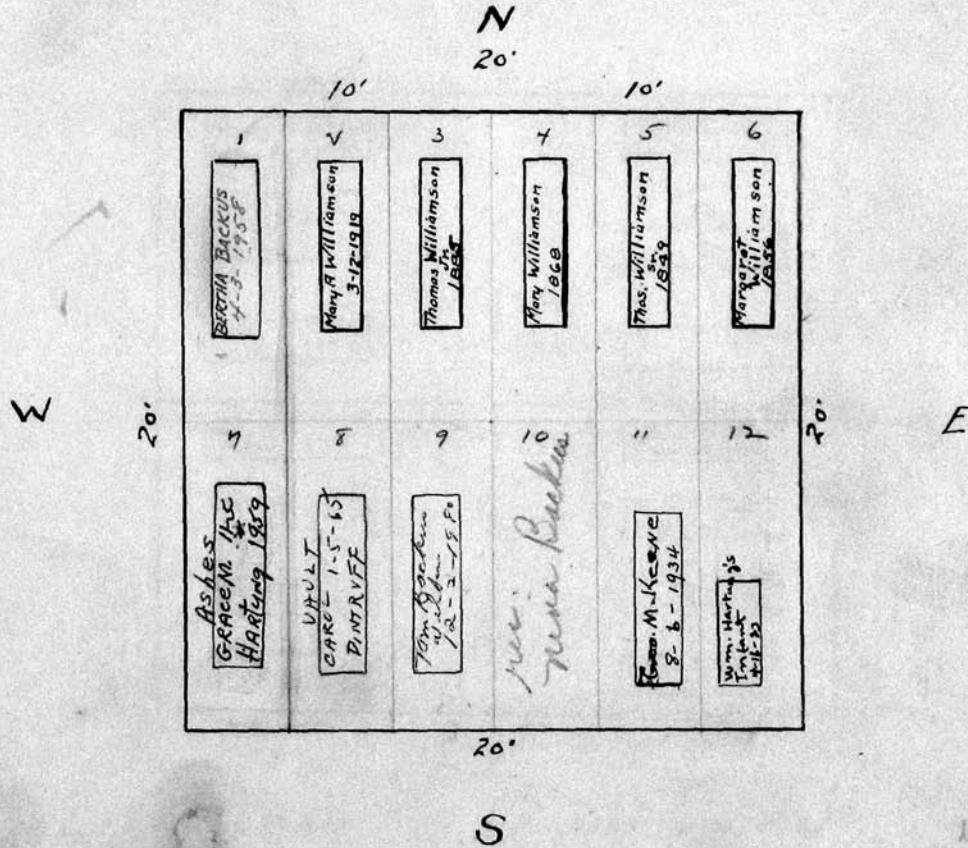 N
20'
10' 10'
1 2 3 4 5 6
BERTHA BACKUS
4-3-1958
Mary A Williamson
3-12-1919
Thomas Williamson
Jr.
1885
Mary Williamson
1868
Thos. Williamson
Sr.
Margaret
Williamson
1856
W
20'
20'
E
7 8 9 10 11 12
Ashes
GRACE M.
HARTUNG 1959
VAULT
CAROL 1-5-65
Tom Backus
12-2-1980
res.
Backus
M. Keene
8-6-1934
Wm. Hartung's
Infant
20'
S